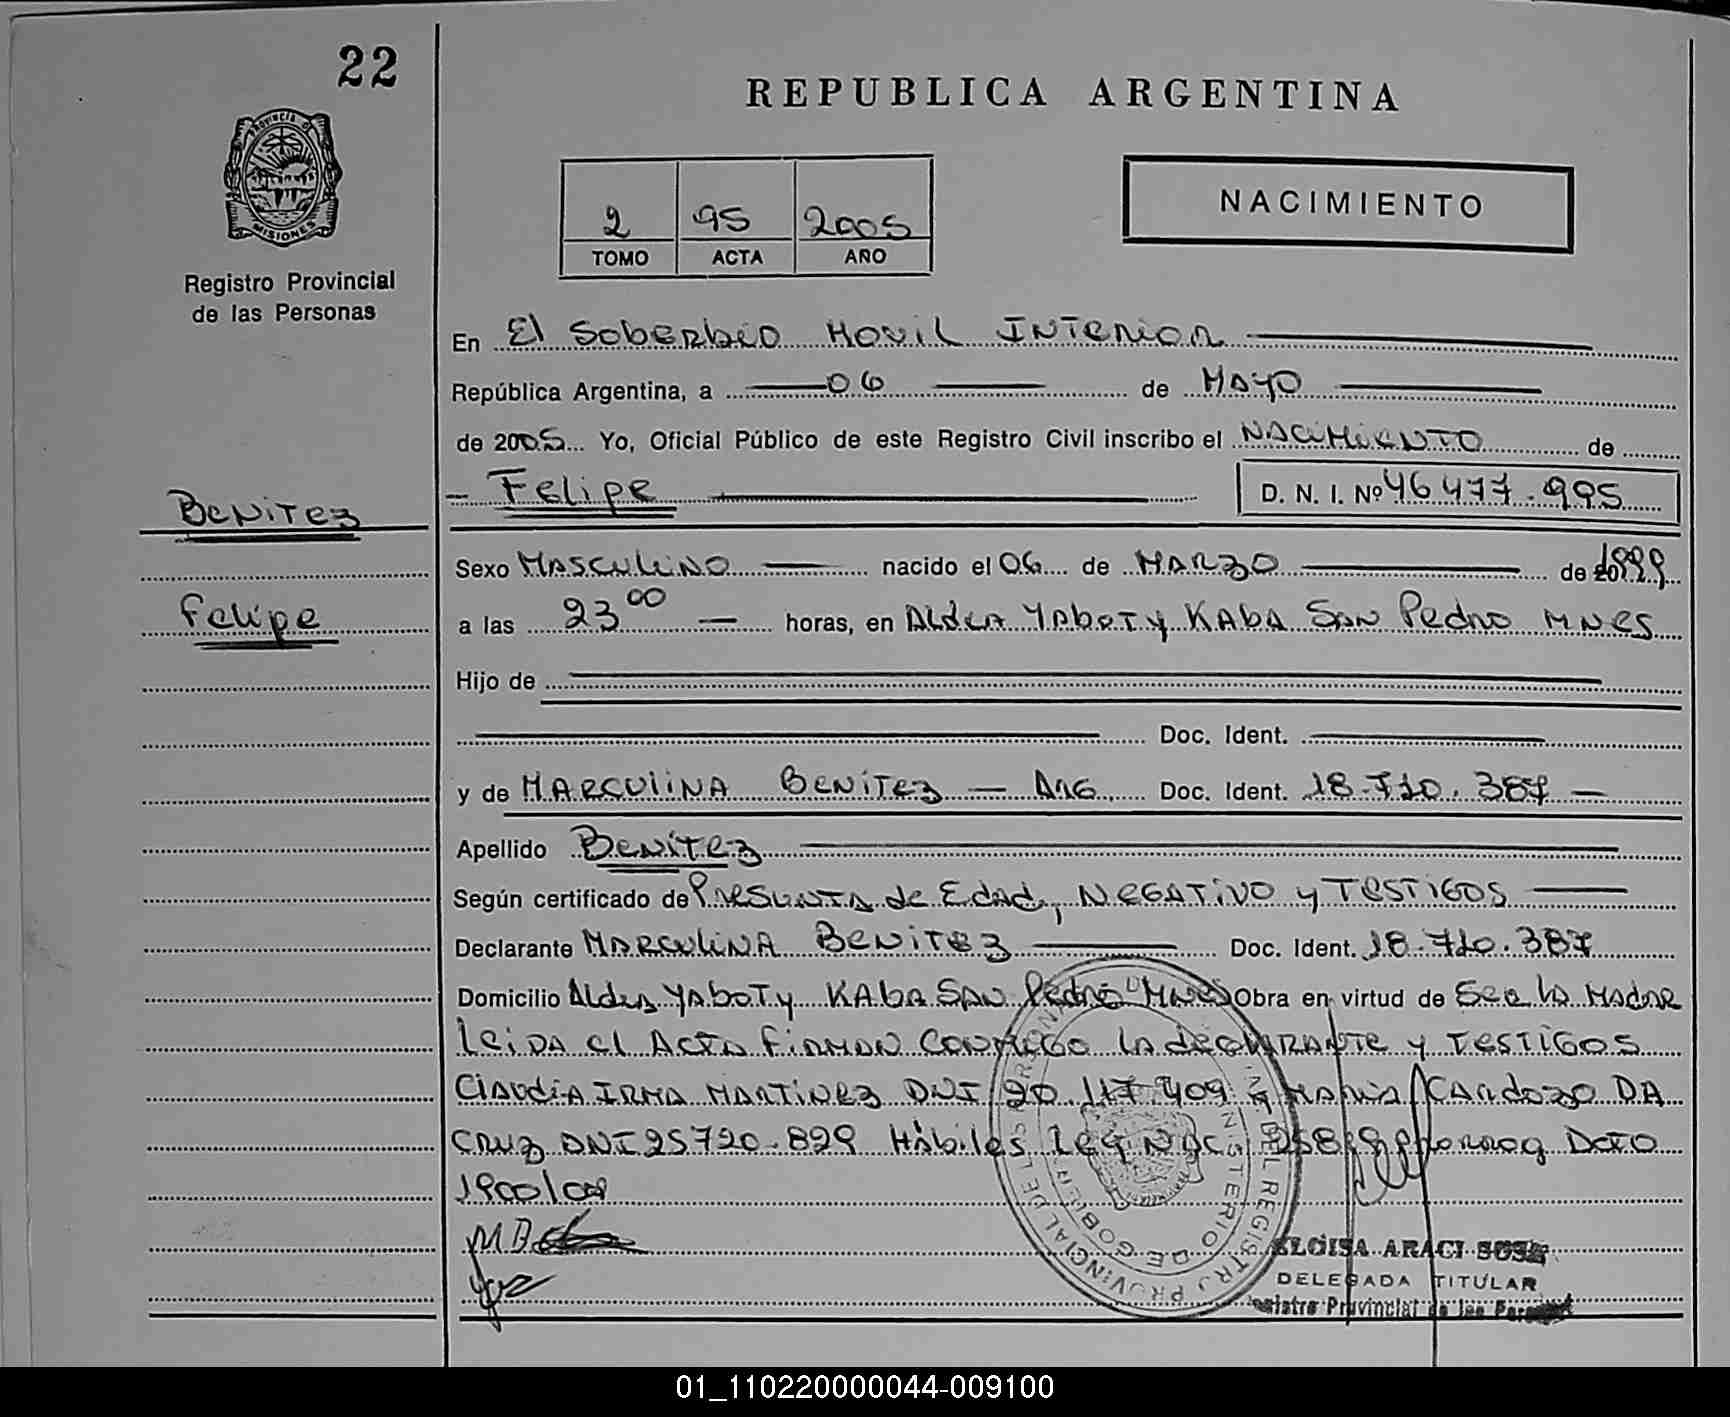 22
REPUBLICA ARGENTINA
PROVINCIA DE
MISIONES
Registro Provincial
de las Personas
NACIMIENTO
2 95 2005
TOMO ACTA AÑO
En El Soberbio Movil Interior
República Argentina, a 06 de Mayo
de 2005 Yo, Oficial Público de este Registro Civil inscribo el Nacimiento de
Felipe D. N. I. Nº 46 477.995
Benitez
Sexo Masculino nacido el 06 de Marzo de 1999
Felipe
a las 23 00 horas, en Aldea Yaboty Kaba San Pedro Mnes
Hijo de
Doc. Ident.
y de Marculina Benitez — Arg Doc. Ident. 18.710.387 —
Apellido Benitez
Según certificado de Presunta de Edad, Negativo y Testigos
Declarante Marculina Benitez Doc. Ident. 18.710.387
Domicilio Aldea Yaboty Kaba San Pedro Mnes Obra en virtud de Ser la Madre
Leida el Acta firman conmigo la declarante y Testigos
Claudia Irma Martinez DNI 20.117.409 Maria Cardozo Da
Cruz DNI 25720.829 Hábiles Ley Nac Dcto
ELOISA ARACI
DELEGADA TITULAR
Registro Provincial de las Personas
01_110220000044-009100